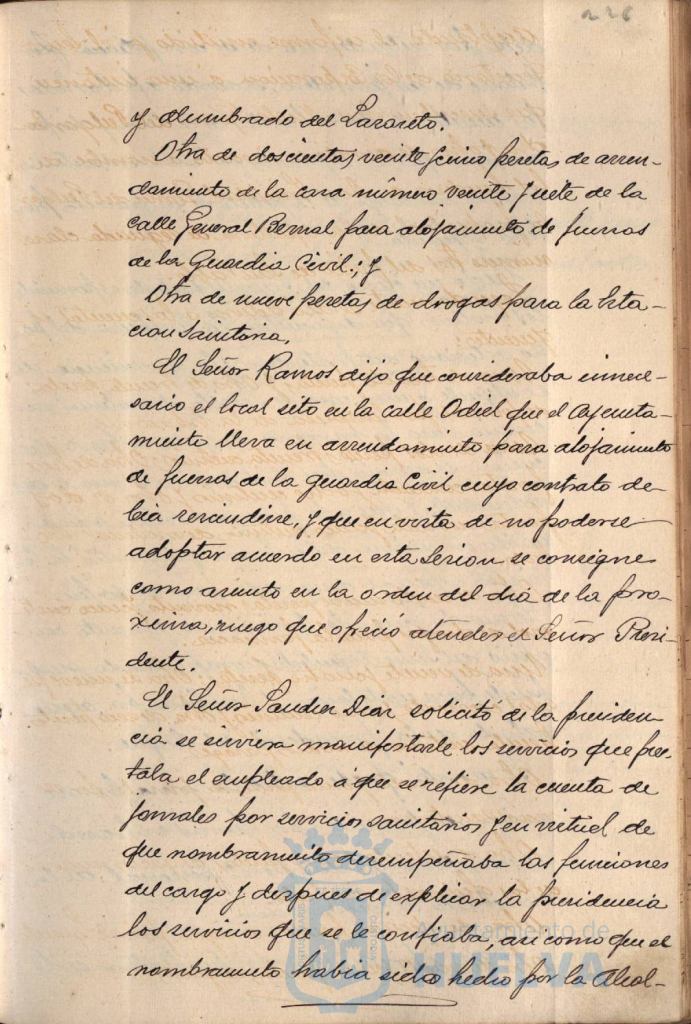 226
y alumbrado del Lazareto.
Otra de doscientas veinte y cinco pesetas de arren-
damiento de la casa número veinte y siete de la
calle General Bernal para alojamiento de fuerzas
de la Guardia Civil.; y
Otra de nueve pesetas de drogas para la Esta-
cion Sanitaria.
El Señor Ramos dijo que consideraba innece-
sario el local sito en la calle Odiel que el Ayunta-
miento lleva en arrendamiento para alojamiento
de fuerzas de la guardia Civil cuyo contrato de-
bia rescindirse, y que en vista de no poderse
adoptar acuerdo en esta Sesion se consigne
como asunto en la orden del dia de la pro-
xima, ruego que ofreció atender el Señor Presi-
dente.
El Señor Sanchez Diaz solicitó de la presiden-
cia se sirviera manifestarle los servicios que pres-
taba el empleado á que se refiere la cuenta de
jornales por servicios sanitarios y en virtud de
que nombramiento desempeñaba las funciones
del cargo y despues de explicar la presidencia
los servicios que se le confiaba, asi como que el
nombramiento habia sido hecho por la Alcal-
Ayuntamiento de
HUELVA